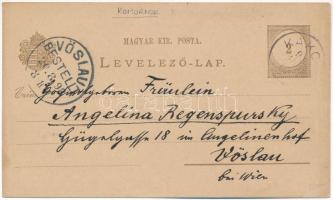 KOMORNOK
MAGYAR KIR. POSTA.
LEVELEZŐ-LAP.
VÖSLAU
BESTELLT
Hochwolgeboren Fräulein
Angelina Regenspursky
Hügelgasse 18 im Angelinenhof
Vöslau
bei Wien